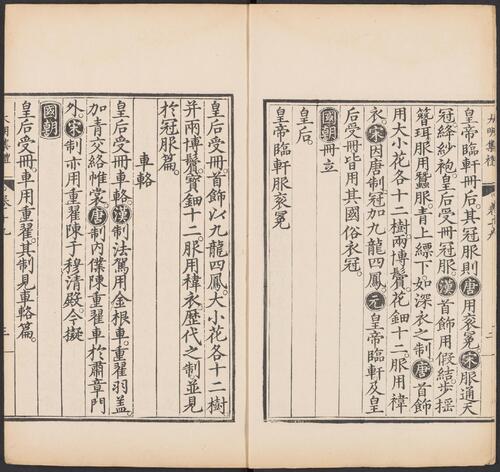 皇帝臨軒冊后其冠服則唐用袞冕宋服通天
冠絳紗袍皇后受冊冠服漢首飾用假結步搖
簪珥服用蠶服青上縹下如深衣之制唐首飾
用大小花各十二樹兩博鬢花鈿十二服用褘
衣宋因唐制冠加九龍四鳳元皇帝臨軒及皇
后受冊皆用其國俗衣冠
國朝冊立
皇后
皇帝臨軒服袞冕
皇后受冊首飾以九龍四鳳大小花各十二樹
并兩博鬢寶鈿十二服用褘衣歷代之制並見
於冠服篇
車輅
皇后受冊車輅漢制法駕用金根車重翟羽盖
加青交絡帷裳唐制內僕陳重翟車於肅章門
外宋制亦用重翟陳于穆清殿今擬
國朝
皇后受冊車用重翟其制見車輅篇